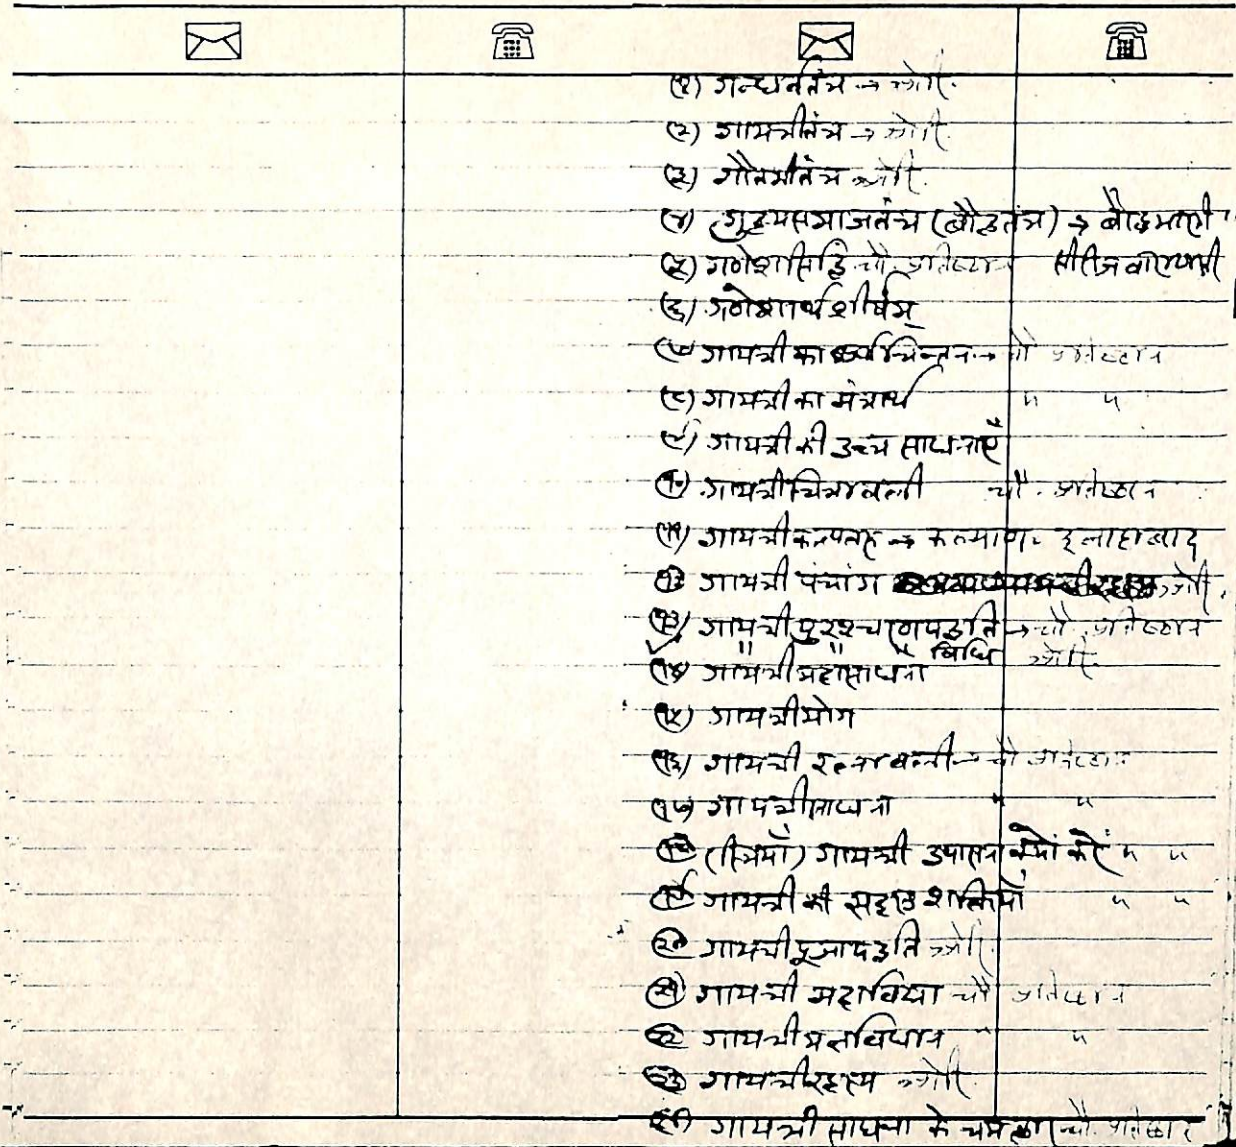 (१) गन्धर्वतंत्र →
(२) गायत्रीतंत्र →
(३) गौतमीतंत्र
(४) गुह्यसमाजतंत्र (बौद्धतंत्र) → बौद्धभारती
(५) गणेशसिद्धि चौ. प्रतिष्ठान सीरीज वाराणसी
(६) गणेशाथर्वशीर्षम्
(७) गायत्री का अर्थचिन्तन → चौ प्रतिष्ठान
(८) गायत्री का मंत्रार्थ " "
(९) गायत्री की उच्च साधनाएँ
(१०) गायत्रीचित्रावली चौ. प्रतिष्ठान
(११) गायत्रीकल्पतरु → कल्याण. इलाहाबाद
(१२) गायत्री पंचांग
(१३) गायत्री पुरश्चरणपद्धति → चौ. प्रतिष्ठान
" " " विधि
(१४) गायत्रीमहासाधना
(१५) गायत्रीयोग
(१६) गायत्री रत्नावली → चौ प्रतिष्ठान
(१७) गायत्रीसाधना " "
(१८) (स्त्रियाँ) गायत्री उपासना क्यों करें " "
(१९) गायत्री की सहस्र शक्तियाँ " "
(२०) गायत्रीपूजापद्धति
(२१) गायत्री महाविद्या चौ प्रतिष्ठान
(२२) गायत्रीव्रतविधान " "
(२३) गायत्रीरहस्य
(२४) गायत्री साधना के चमत्कार चौ. प्रतिष्ठान